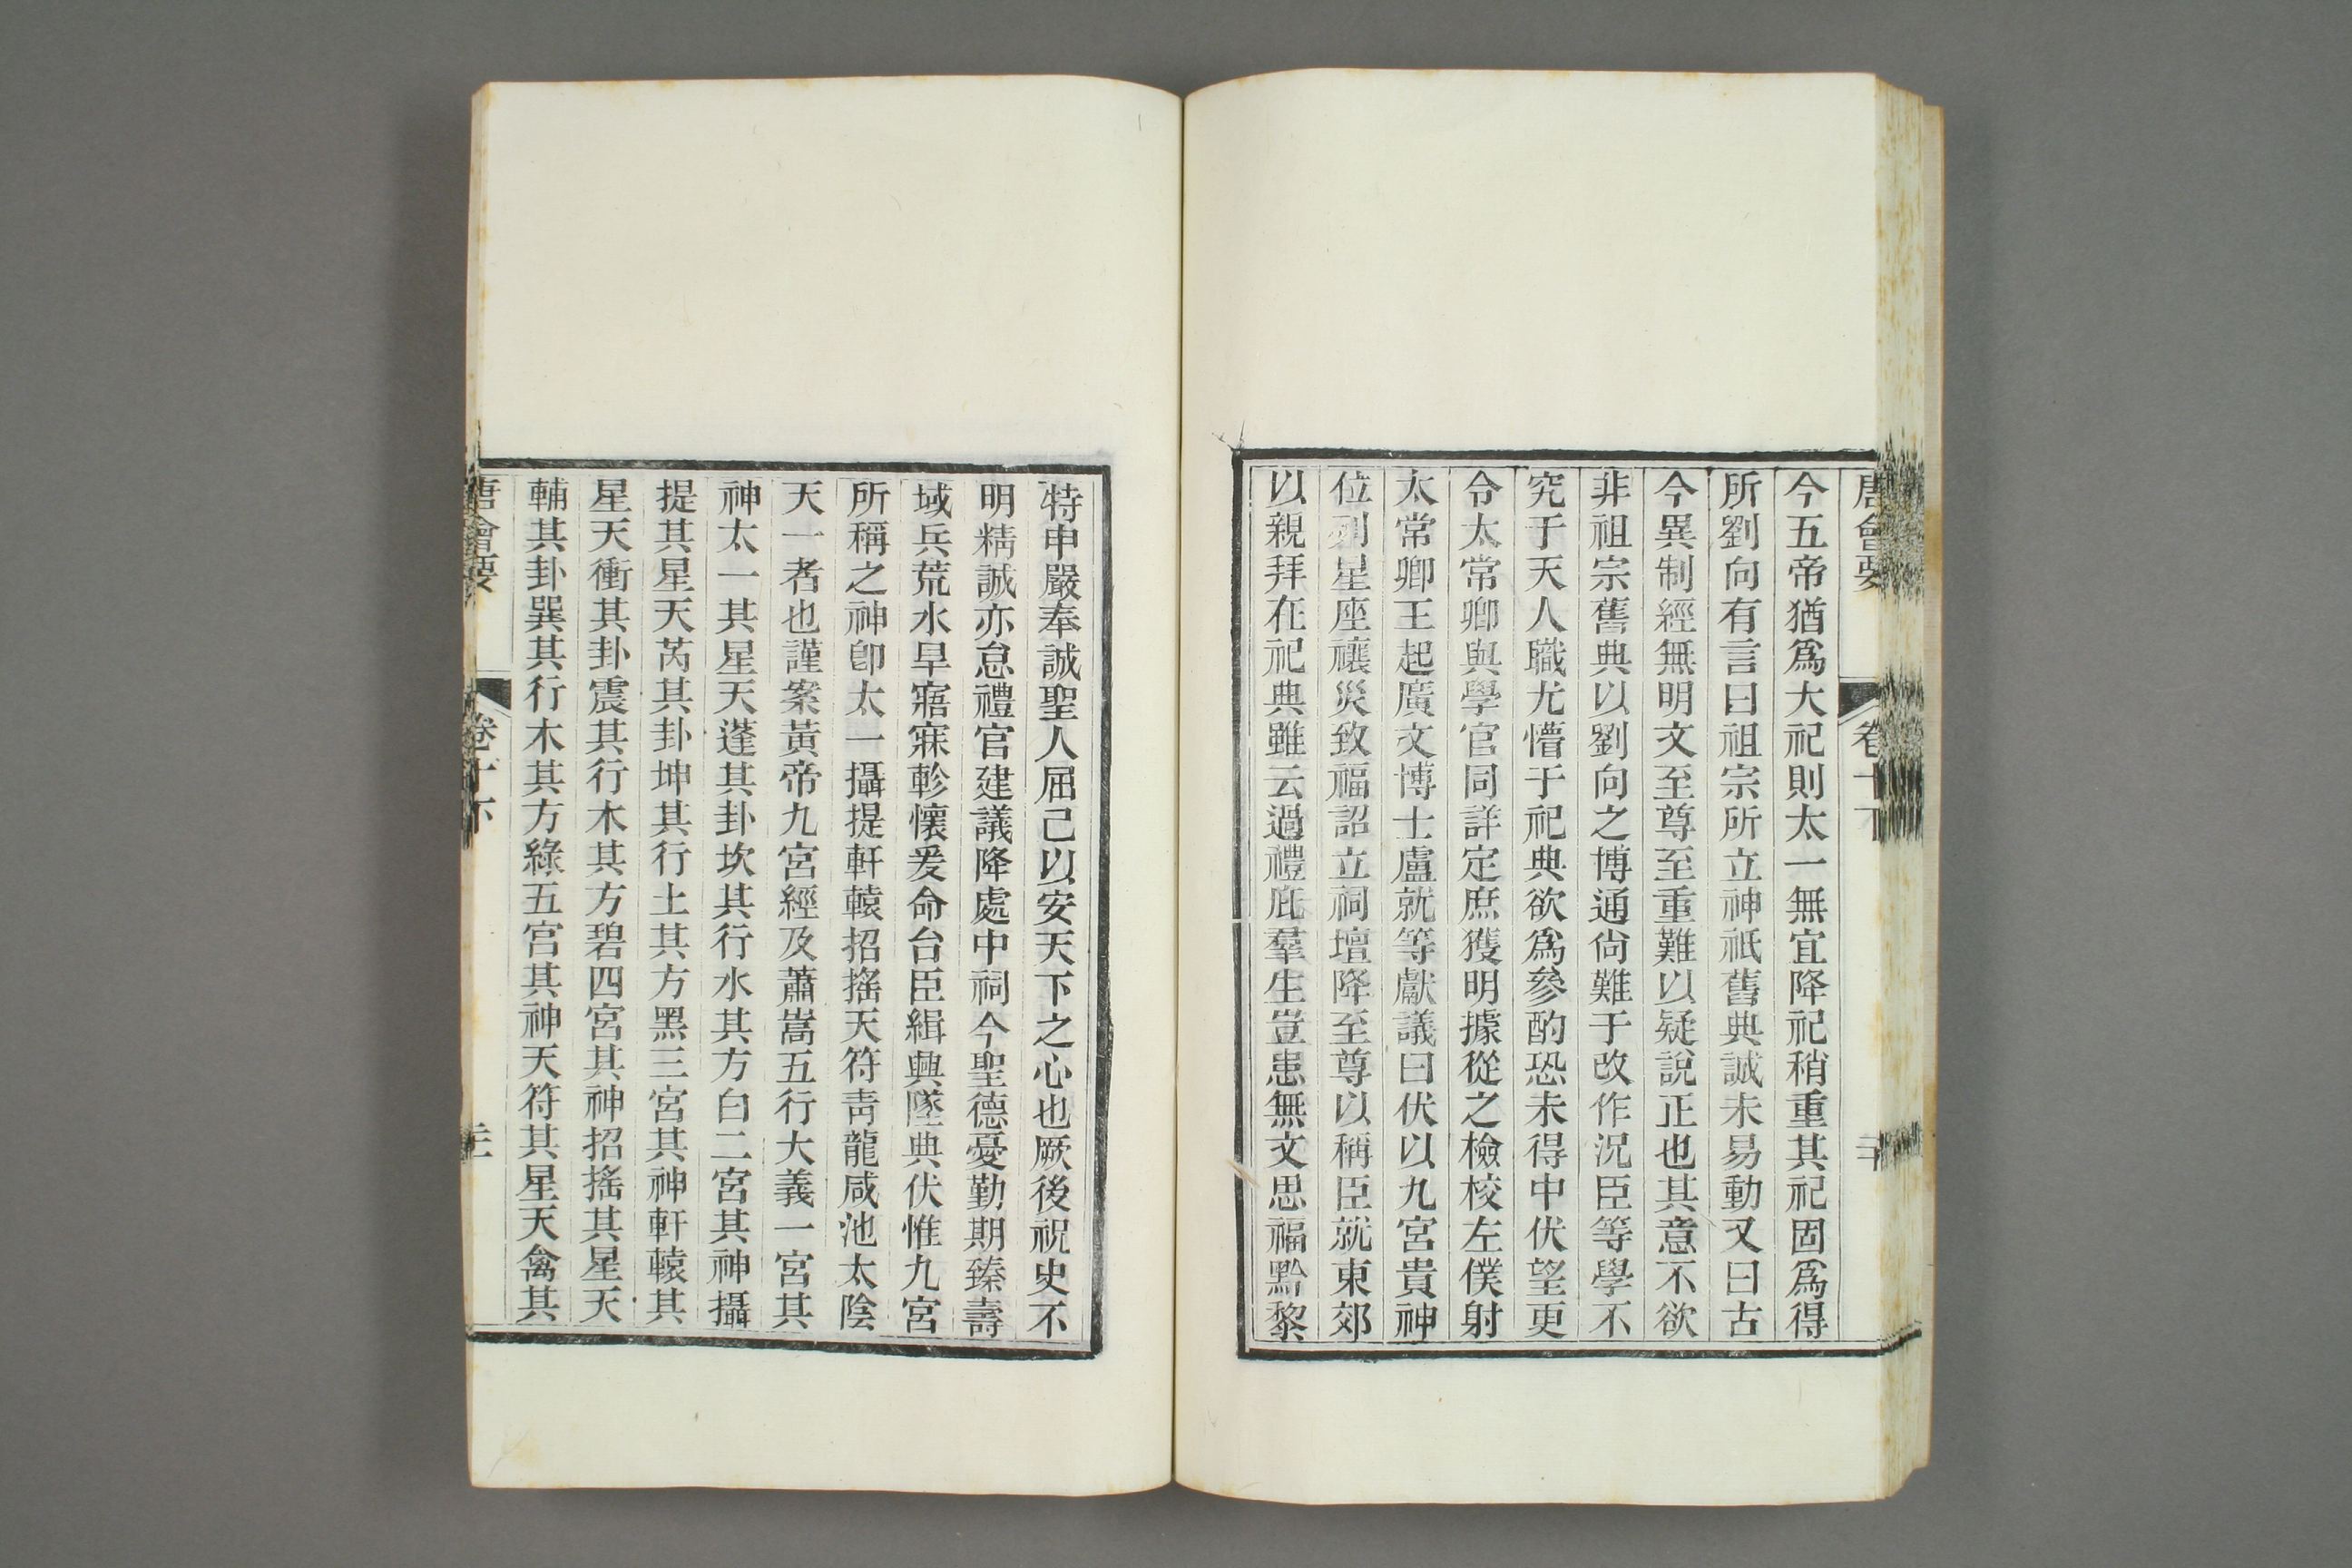 唐會要 卷十下
今五帝猶爲大祀則太一無宜降祀稍重其祀固爲得
所劉向有言曰祖宗所立神祇舊典誠未易動又曰古
今異制經無明文至尊至重難以疑說正也其意不欲
非祖宗舊典以劉向之博通尙難于改作況臣等學不
究于天人職尤懵于祀典欲爲參酌恐未得中伏望更
令太常卿與學官同詳定庶獲明據從之檢校左僕射
太常卿王起廣文博士盧就等獻議曰伏以九宮貴神
位列星座禳災致福詔立祠壇降至尊以稱臣就東郊
以親拜在祀典雖云過禮庇羣生豈患無文思福黔黎
特申嚴奉誠聖人屈己以安天下之心也厥後祝史不
明精誠亦怠禮官建議降處中祠今聖德憂勤期臻壽
域兵荒水旱寤寐軫懷爰命台臣緝興墜典伏惟九宮
所稱之神卽太一攝提軒轅招搖天符靑龍咸池太陰
天一者也謹案黃帝九宮經及蕭嵩五行大義一宮其
神太一其星天蓬其卦坎其行水其方白二宮其神攝
提其星天芮其卦坤其行土其方黑三宮其神軒轅其
星天衝其卦震其行木其方碧四宮其神招搖其星天
輔其卦巽其行木其方綠五宮其神天符其星天禽其
唐會要 卷十下